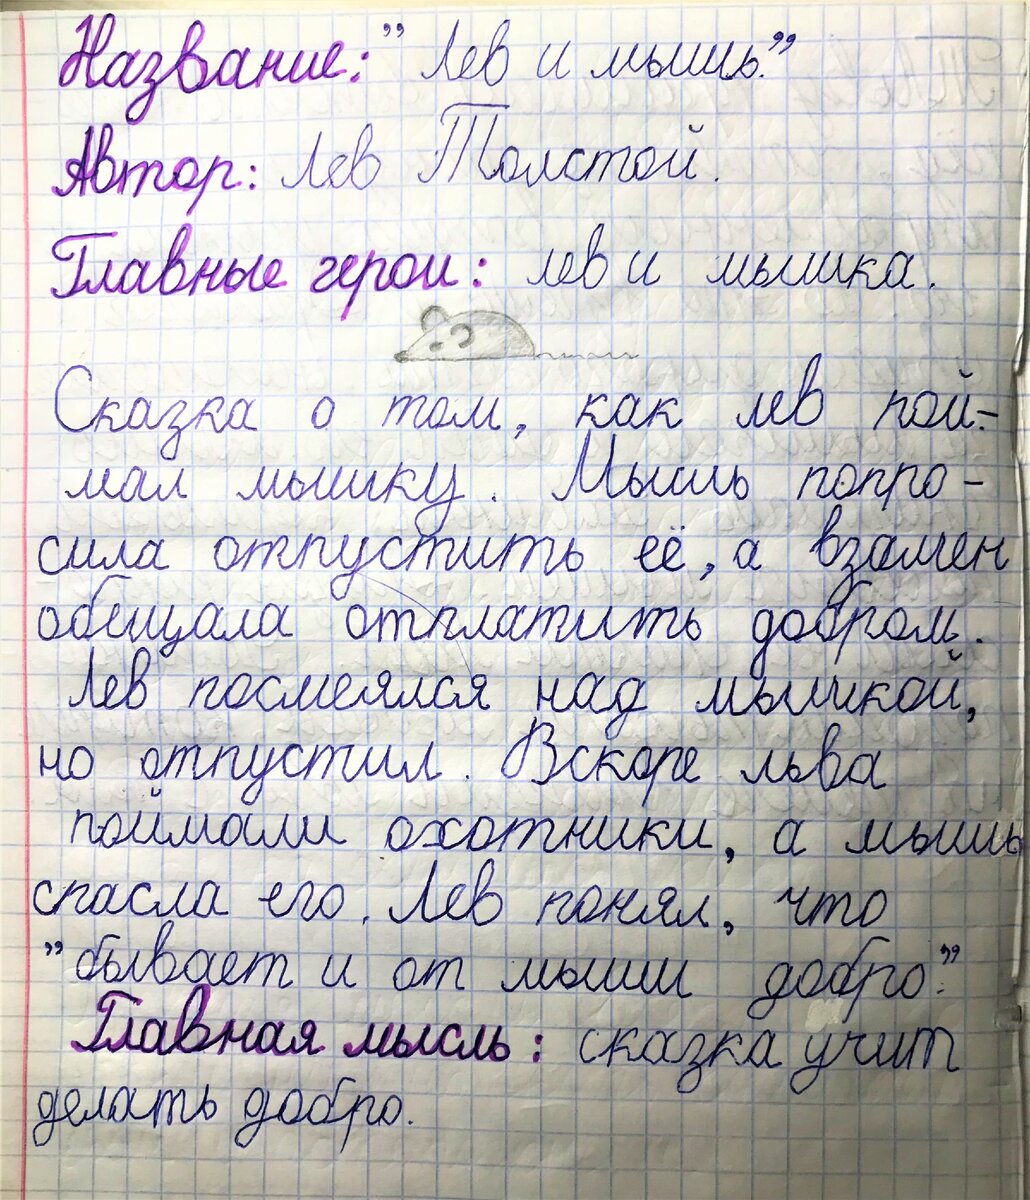 Название: "Лев и мышь."
Автор: Лев Толстой.
Главные герои: лев и мышка.
Сказка о том, как лев пой-
мал мышку. Мышь попро-
сила отпустить её, а взамен
обещала отплатить добром.
Лев посмеялся над мышкой,
но отпустил. Вскоре льва
поймали охотники, а мышь
спасла его. Лев понял, что
"бывает и от мыши добро."
Главная мысль: сказка учит
делать добро.